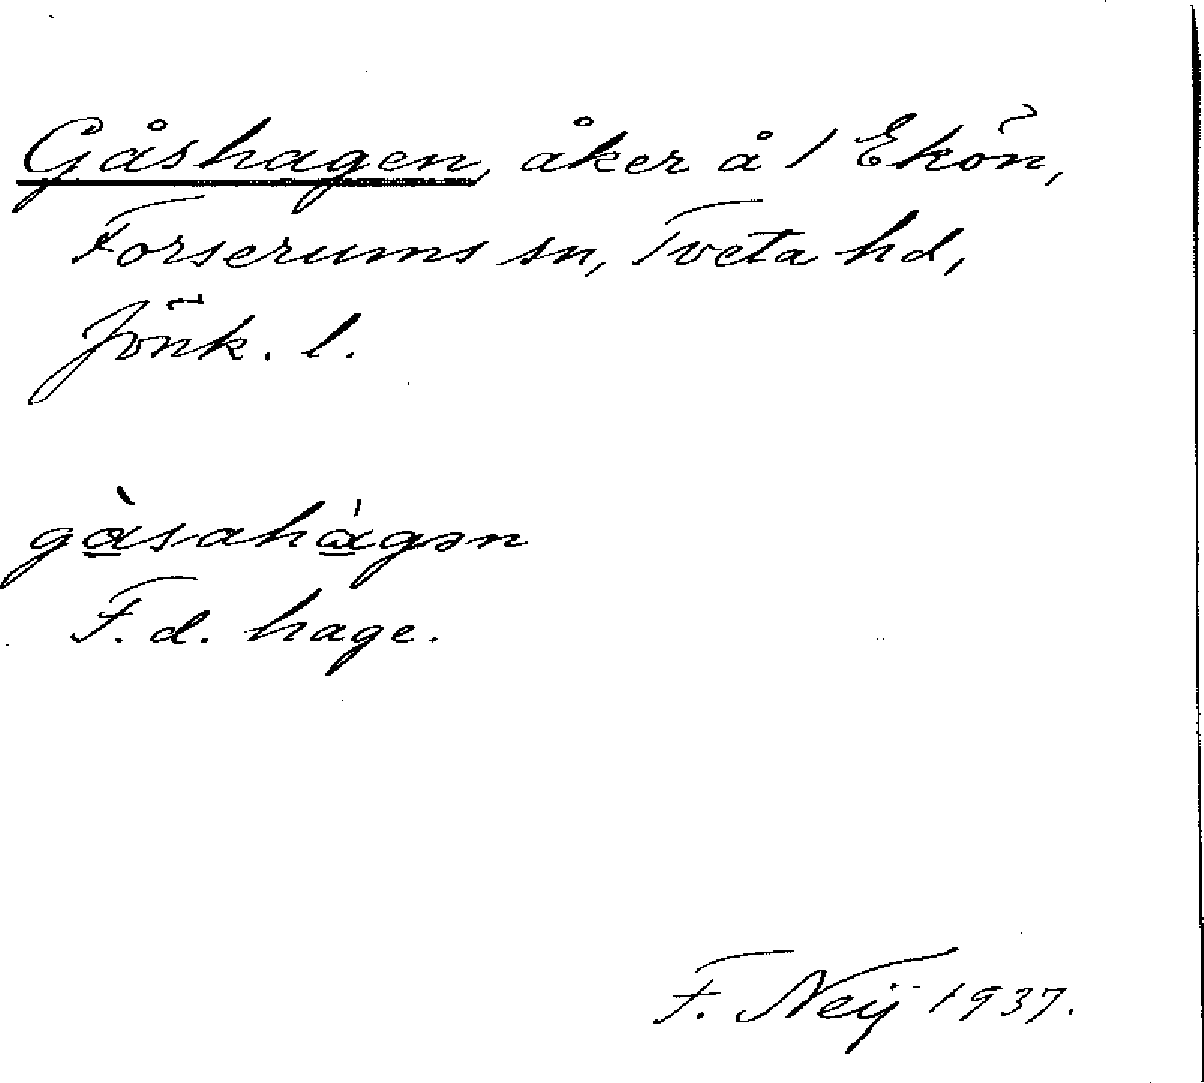 Gåshagen, åker å 1 Ekön,
Forserums sn, Tveta hd,
Jönk. l.
gàsahágən
F. d. hage.
F. Neij 1937.